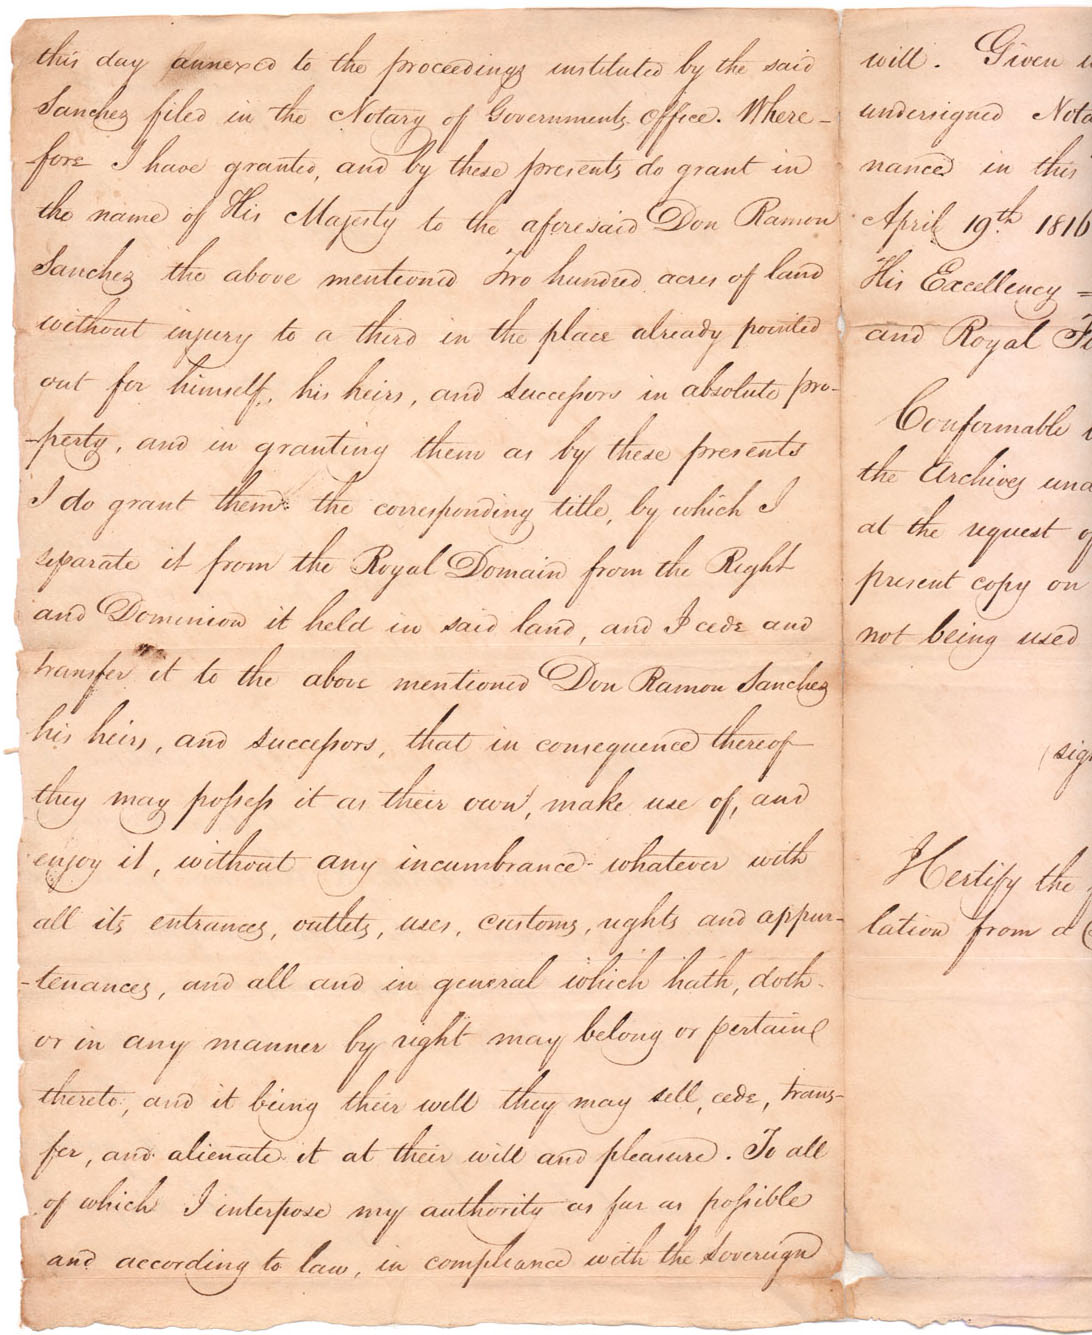 this day annexed to the proceedings instituted by the said
Sanchez filed in the Notary of Governments office. Where-
-fore I have granted, and by these presents do grant in
the name of His Majesty to the aforesaid Don Ramon
Sanchez the above mentioned Two hundred acres of land
without injury to a third in the place already pointed
out for himself, his heirs, and successors in absolute pro-
-perty, and in granting them as by these presents
I do grant them the corresponding title, by which I
separate it from the Royal Domain from the Right
and Dominion it held in said land, and I cede and
transfer it to the above mentioned Don Ramon Sanchez
his heirs, and successors, that in consequence thereof
they may possess it as their own, make use of, and
enjoy it, without any incumbrance whatever with
all its entrances, outlets, uses, customs, rights and appur-
-tenances, and all and in general which hath, doth
or in any manner by right may belong or pertain
thereto, and it being their will they may sell, cede, trans-
fer, and alienate it at their will and pleasure. To all
of which I interpose my authority as far as possible
and according to law, in compliance with the Sovereign
will. Given
undersigned Nota
nanced in this
April 19th 1816
His Excellency =
and Royal
Conformable
the Archives und
at the request of
present copy on
not being used
(sig
I Certify the
lation from a